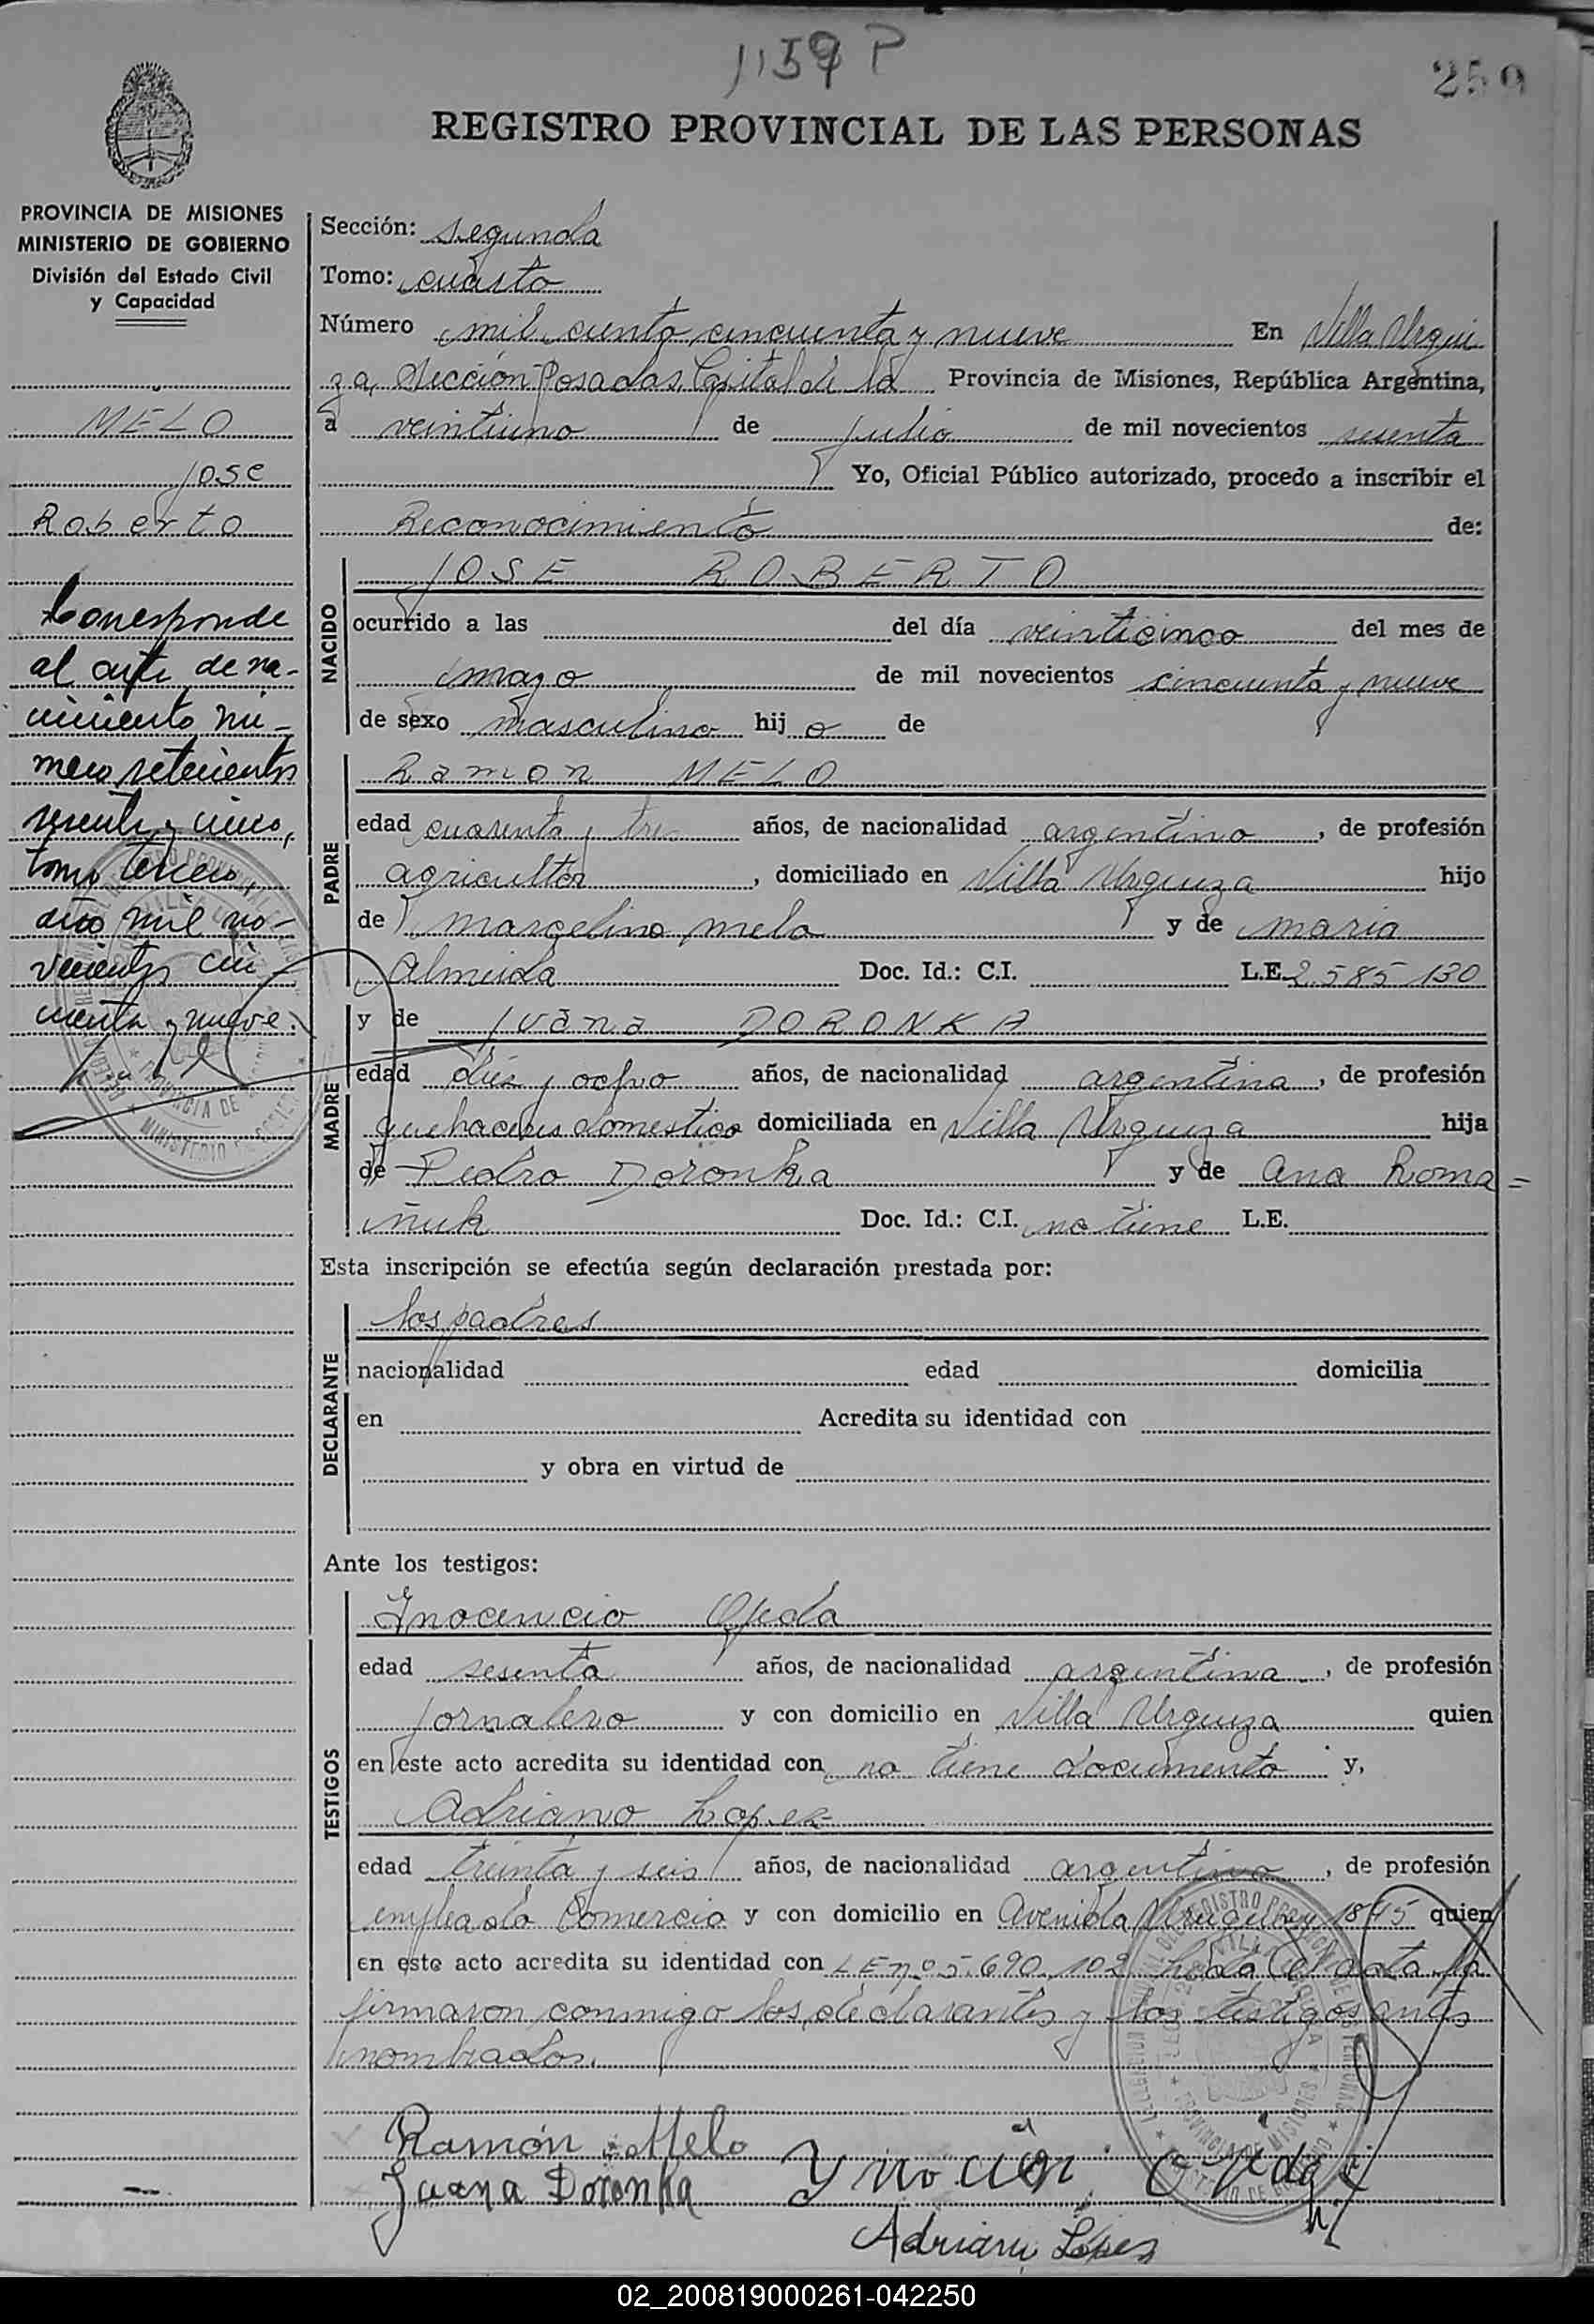 1159 P
259
REGISTRO PROVINCIAL DE LAS PERSONAS
PROVINCIA DE MISIONES
MINISTERIO DE GOBIERNO
División del Estado Civil
y Capacidad
MELO
Jose
Roberto
Corresponde
al acta de na-
cimiento nu-
mero setecientos
sesenta y cinco,
tomo tercero,
año mil no-
vecientos cin
cuenta y nueve.
Sección: segunda
Tomo: cuarto
Número mil ciento cincuenta y nueve En Villa Urqui
za, Sección Posadas, Capital de la Provincia de Misiones, República Argentina,
a veintiuno de julio de mil novecientos sesenta
Yo, Oficial Público autorizado, procedo a inscribir el
Reconocimiento de:
NACIDO
JOSE ROBERTO
ocurrido a las del día veinticinco del mes de
mayo de mil novecientos cincuenta y nueve
de sexo masculino hijo de
PADRE
Ramon MELO
edad cuarenta y tres años, de nacionalidad argentino, de profesión
agricultor, domiciliado en Villa Urquiza hijo
de Marcelino Melo y de Maria
Almeida Doc. Id.: C.I. L.E. 2.585.130
MADRE
y de Juana DORONKA
edad diez y ocho años, de nacionalidad argentina, de profesión
quehaceres domestico domiciliada en Villa Urquiza hija
de Pedro Doronka y de Ana Roma=
ñuk Doc. Id.: C.I. no tiene L.E.
Esta inscripción se efectúa según declaración prestada por:
DECLARANTE
los padres
nacionalidad edad domicilia
en Acredita su identidad con
y obra en virtud de
Ante los testigos:
TESTIGOS
Inocencio Ojeda
edad sesenta años, de nacionalidad argentina, de profesión
jornalero y con domicilio en Villa Urquiza quien
en este acto acredita su identidad con no tiene documento y,
Adriano Lopez
edad treinta y seis años, de nacionalidad argentino, de profesión
empleado Comercio y con domicilio en Avenida Uruguay 1845 quien
en este acto acredita su identidad con LE nº 5.690.102 el acta la
firmaron conmigo los declarantes y los testigos antes
nombrados.
Ramón Melo
Juana Doronka
Ojeda
Adriano López
02_200819000261-042250